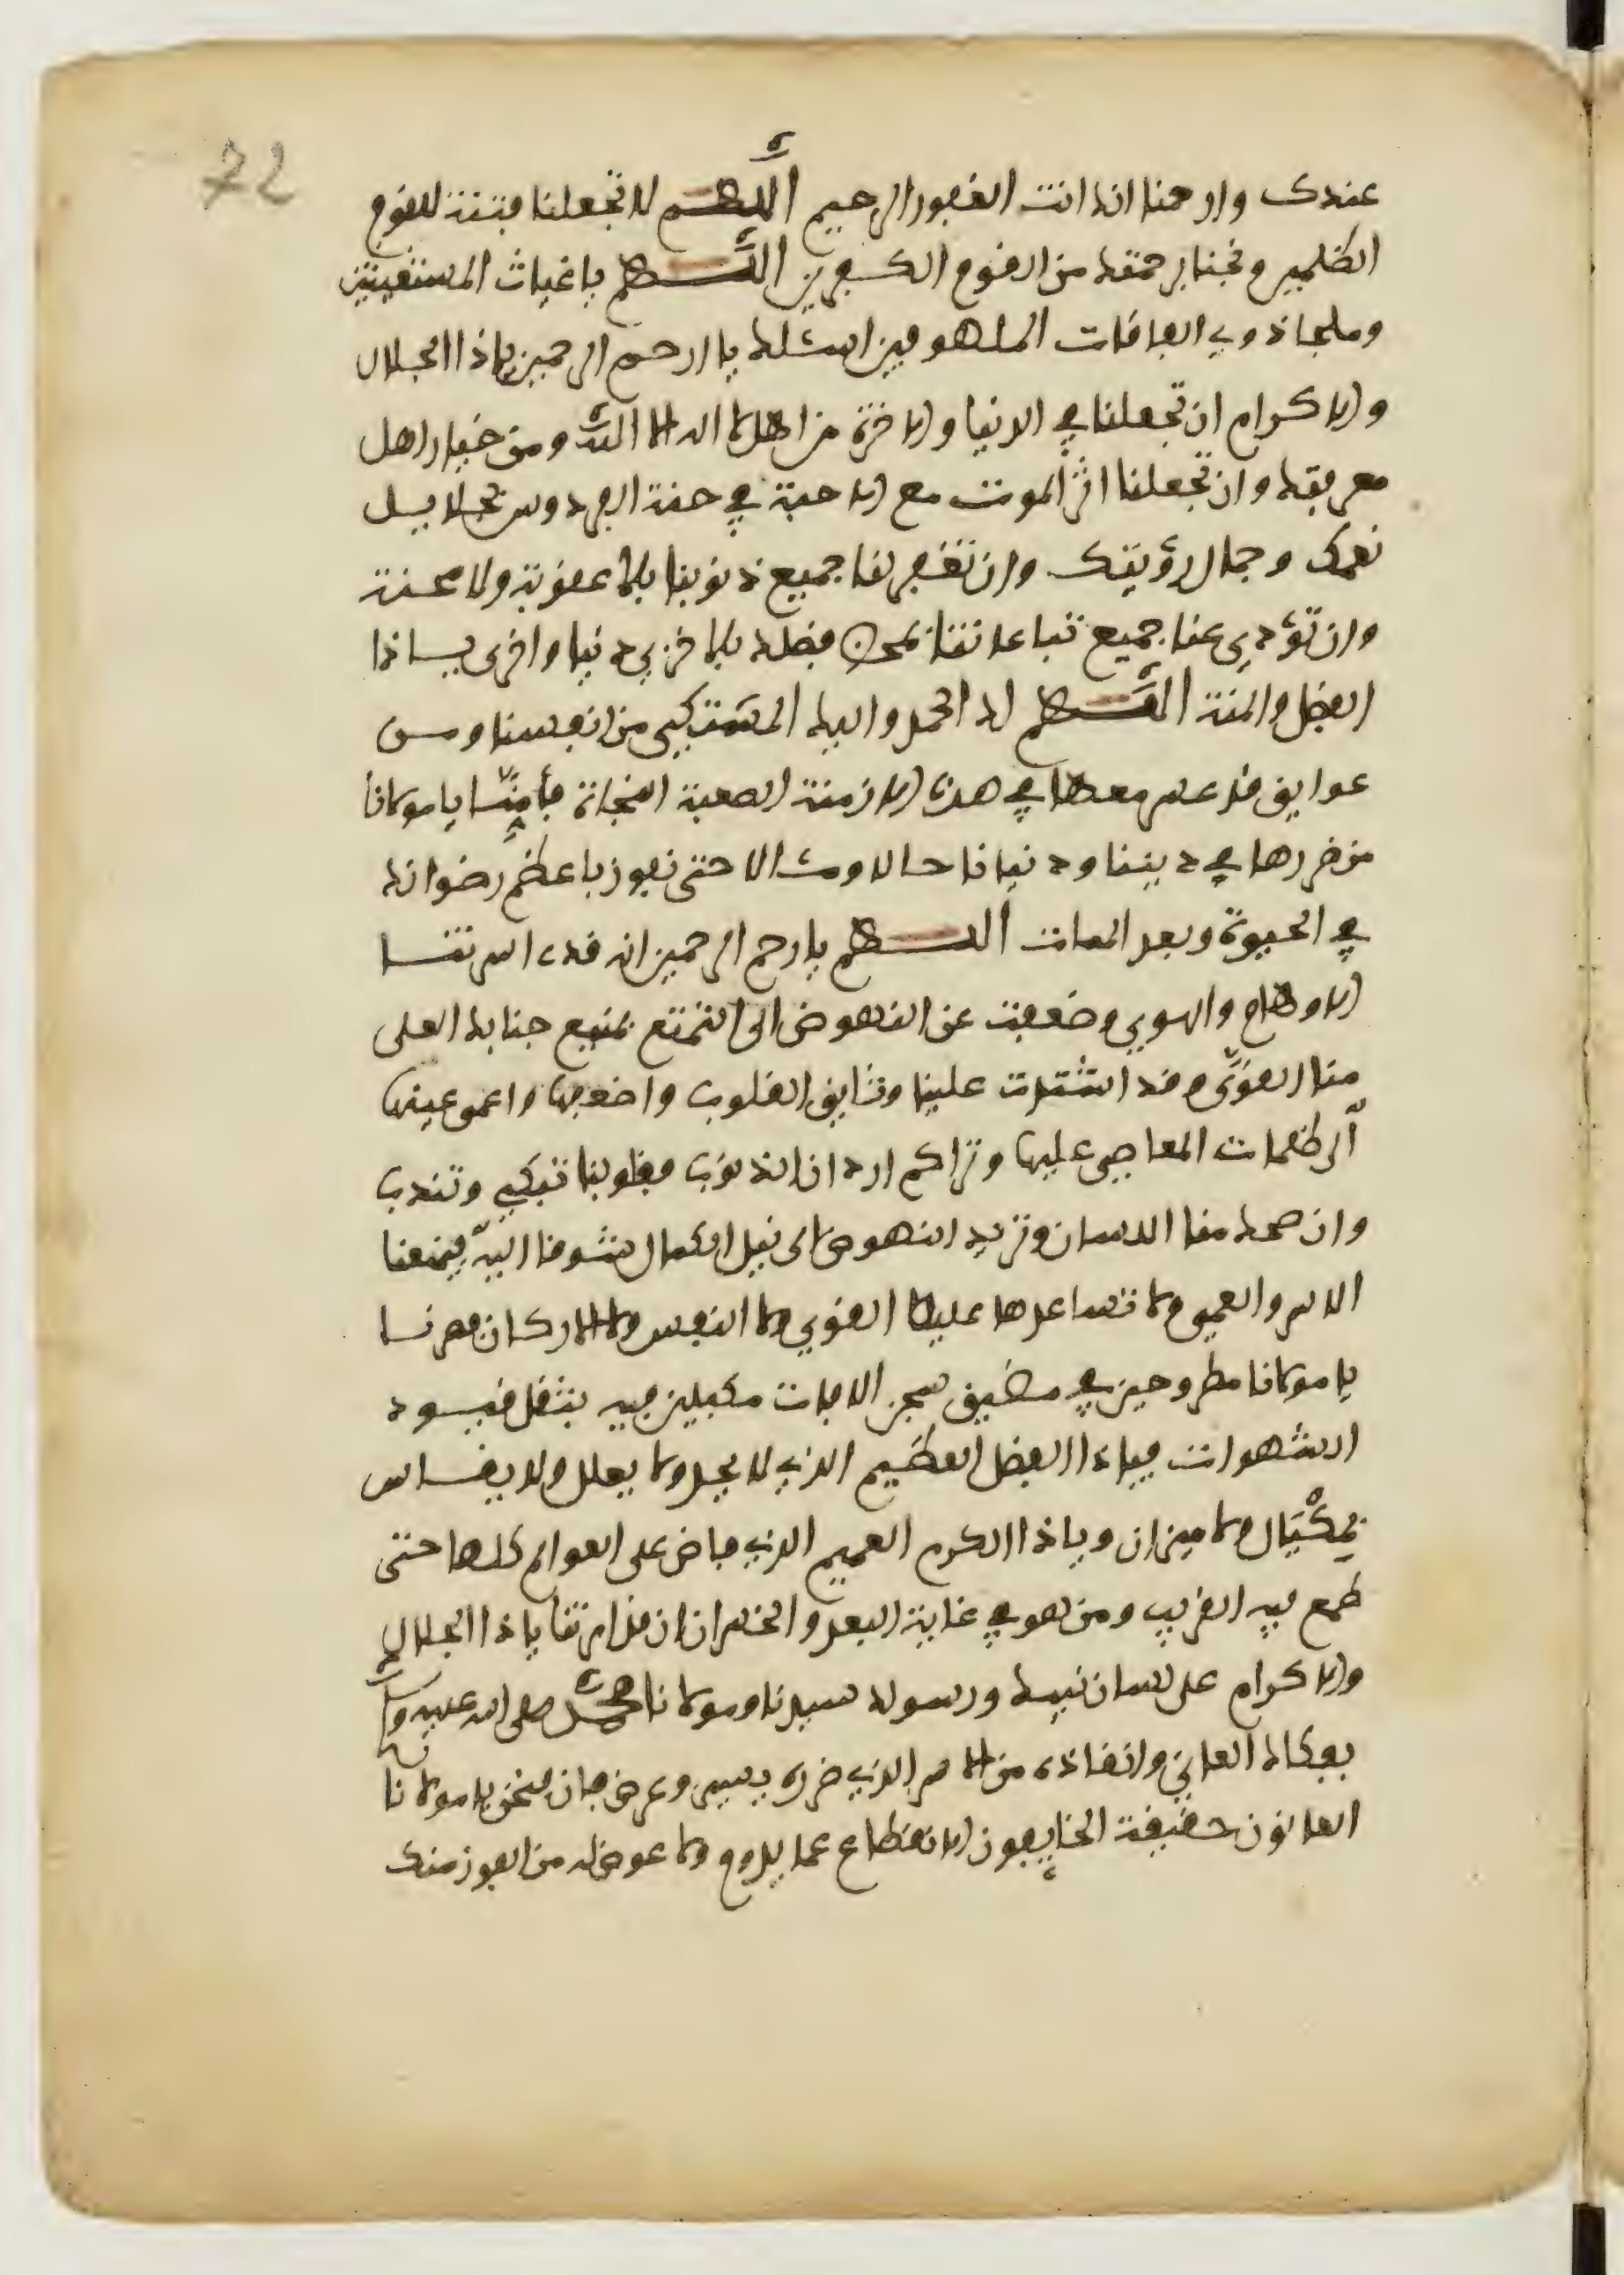 72
عندك وارحمنا انك انت الغفور الرحيم اللهم لا تجعلنا فتنة للقوم
الظلمين ونجنا برحمتك من القوم الكفرين اللهم يا غياث المستغيثين
وملجا ذوي الفاقات الملهوفين اسئلك يا ارحم الرحمين ياذا الجلال
والاكرام ان تجعلنا في الدنيا والاخرة من اهل لا اله الا الله ومن خيار اهل
معرفتك وان تجعلنا اثر الموت مع الاحبة في جنة الفردوس
نعمك وجمال رؤيتك وان تغفر لنا جميع ذنوبنا بلا عقوبة ولا محنة
وان تؤدي عنا جميع تباعاتنا بمحض فضلك بلا خزي دنيا واخرى يا ذا
الفضل والمنة اللهم لك الحمد واليك المشتكى من انفسنا ومن
عوايق قد عسر معها في هذه الازمنة الصعبة النجاة فأمنا يا مولانا
من ضررها في ديننا ودنيانا حالا ومئالا حتى نفوز باعظم رضوانك
في الحيوة وبعد الممات اللهم يا ارحم الرحمين انه قد اسرتنا
الاوهام والهوى وضعفت عن النهوض الى التمتع بمنيع جنابك العلى
منا القوى وقد اشتدت علينا وثايق القلوب واضعفها واعمى عينها
ظلمات المعاصي عليها وتراكم ادران الذنوب فقلوبنا تبكي وتندب
وان ضحك منا اللسان وتريد النهوض الى نيل الكمال تشوفا اليه فيمنعنا
الاسر والعمى ولا تساعدها عليه القوى ولا النفس ولا الاركان فصرنا
يا مولانا مطروحين في مضيق سجن الافات مكبلين فيه بثقل قيود
الشهوات فياذا الفضل العظيم الذي لا يحد ولا يعلل ولا يقاس
بمكيال ولا ميزان وياذا الكرم العميم الذي فاض على العوالم كلها حتى
طمع فيه القريب ومن هو في غاية البعد والخسران انك قد امرتنا ياذا الجلال
والاكرام على لسان نبيك ورسولك سيدنا ومولانا محمد صلى الله عليه وسلم
بفكاك العاني وانقاذه من الاسر الذي ضره يسير وعرض فان فنحن يا مولانا
العانون حقيقة الخايفون الانقطاع عما يدوم ولا عوض له من الفوز منك